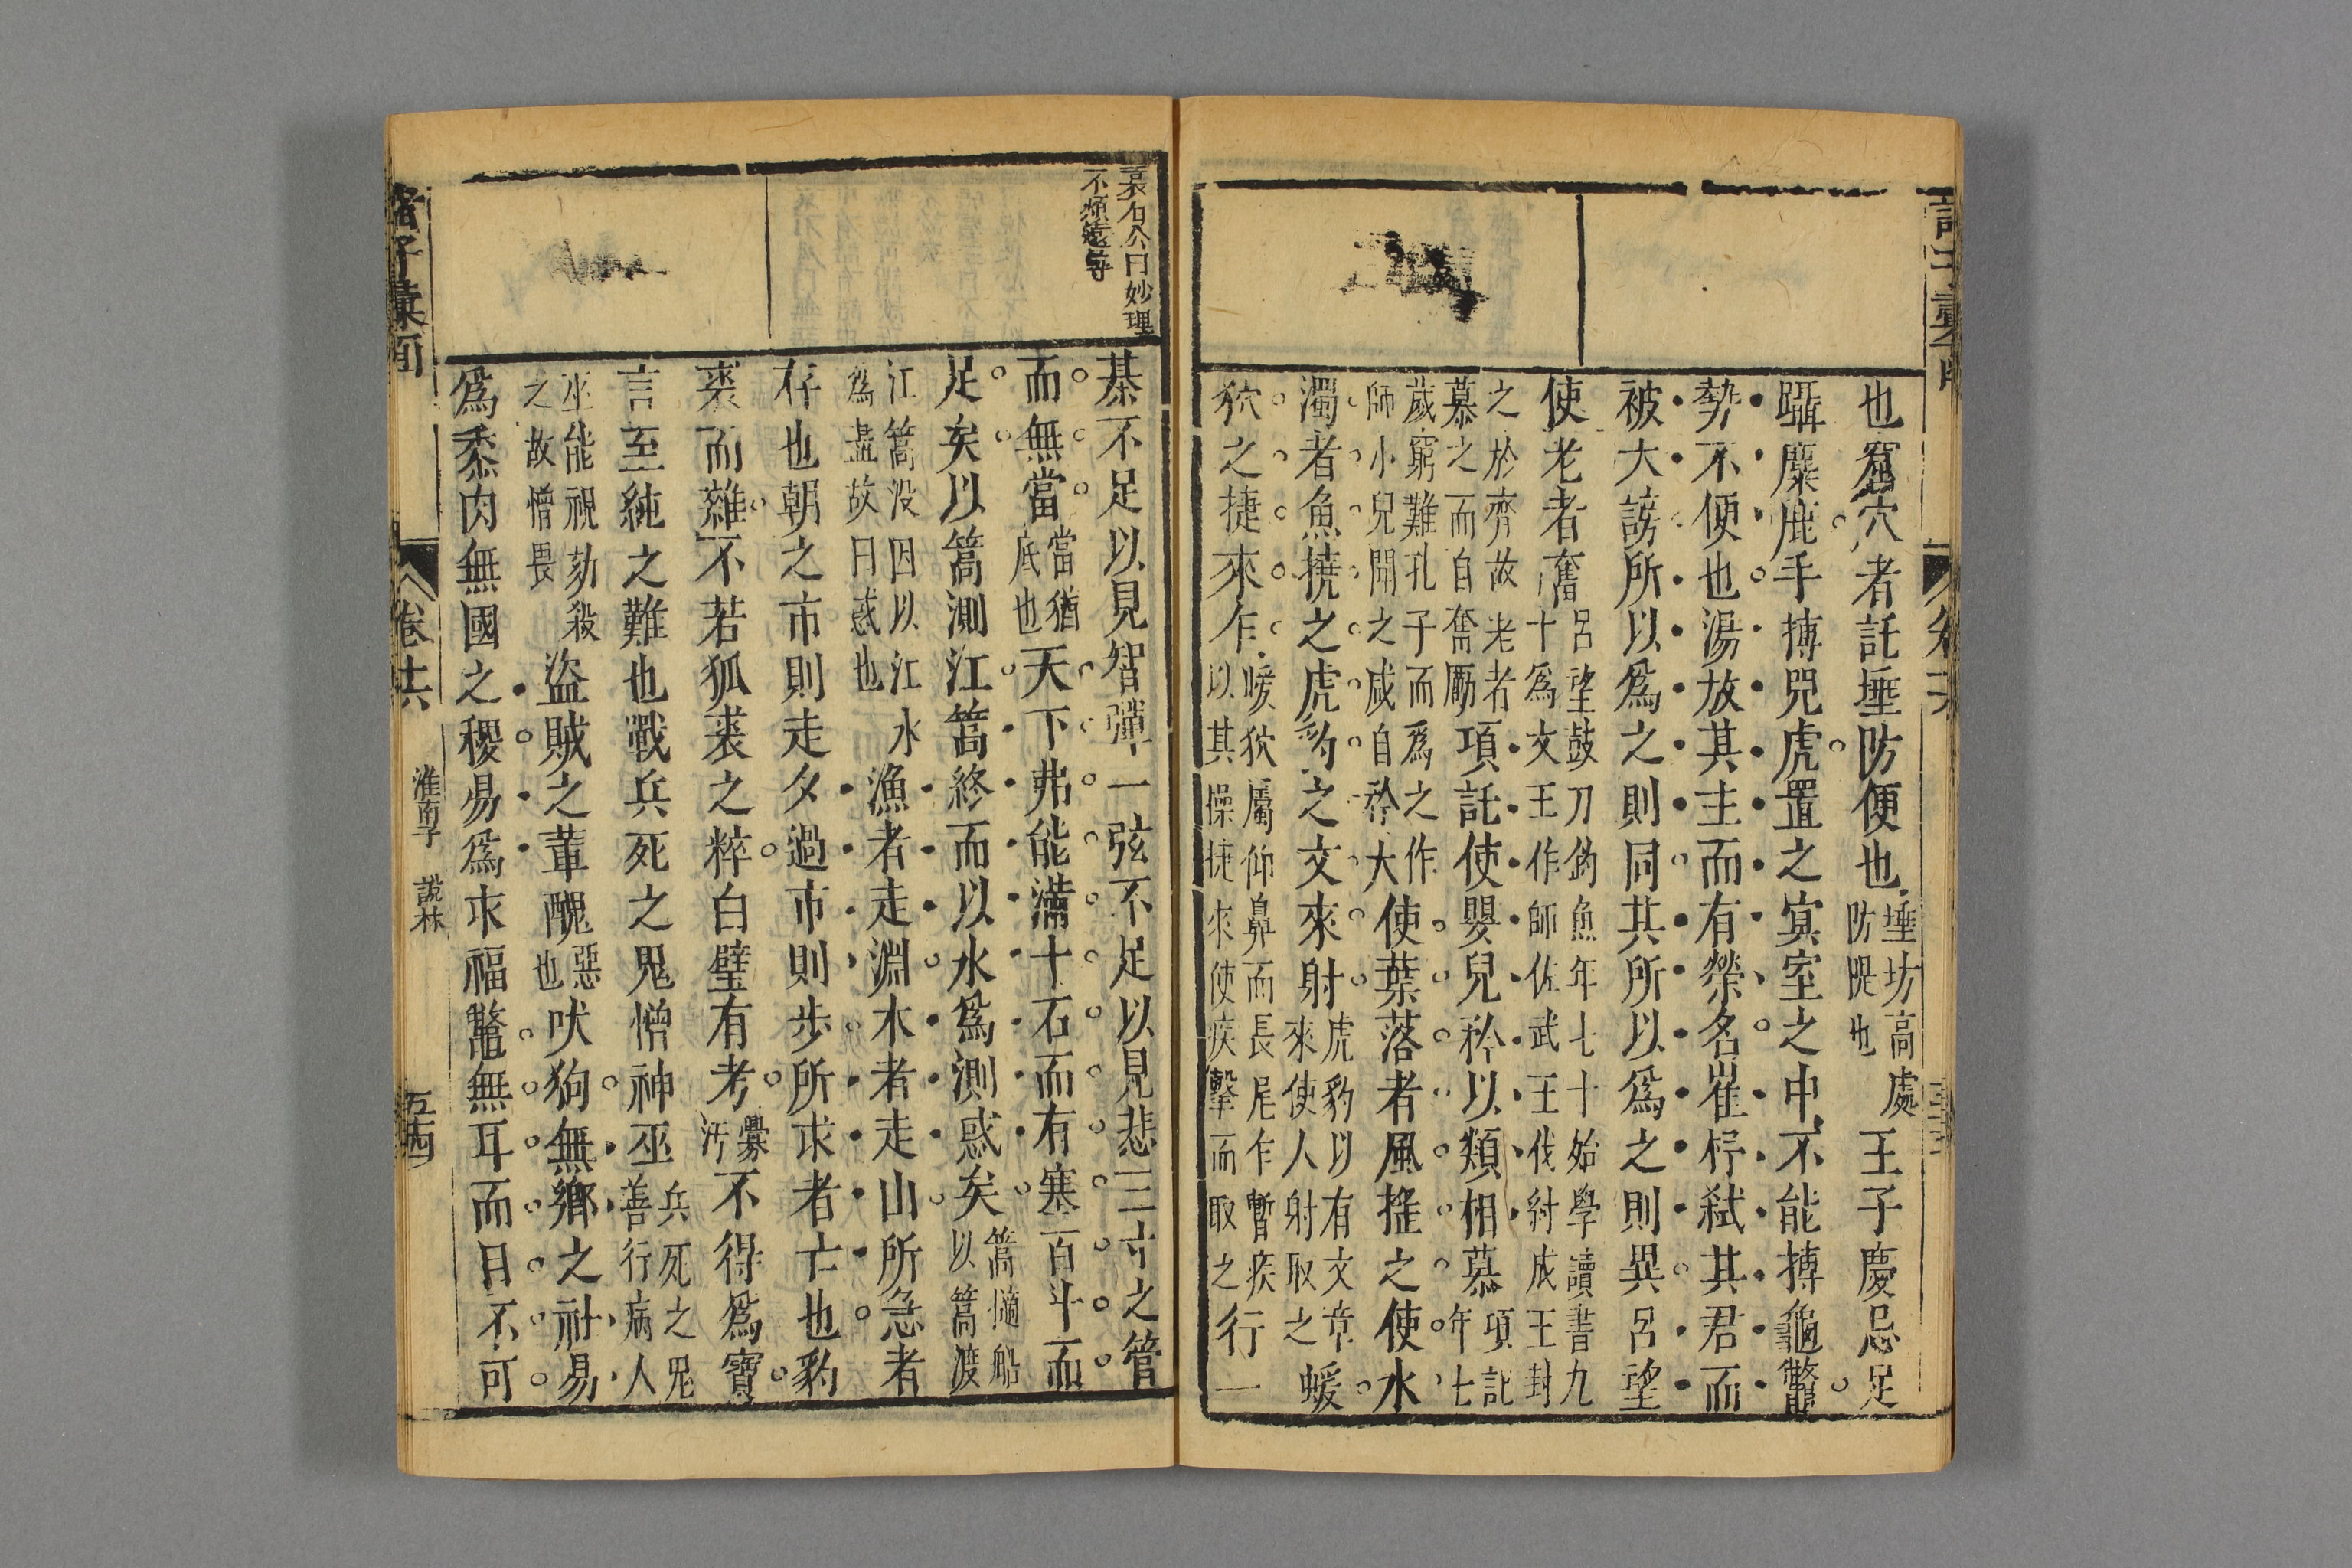 也窟穴者託埵防便也埵坊高處防隄也王子慶忌足
躡麋鹿手搏兕虎置之㝠室之中不能搏龜鱉
勢不便也湯放其主而有榮名崔杼弑其君而
被大謗所以爲之則同其所以爲之則異呂望
使老者奮呂望鼓刀釣魚年七十始學讀書九十爲文王作師佐武王伐紂成王封
之於齊故老者慕之而自奮勵項託使嬰兒矜以類相慕項託年七
歲窮難孔子而爲之作師小兒聞之咸自矜大使葉落者風搖之使水
濁者魚撓之虎豹之文來射虎豹以有文章來使人射取之蝯
狖之捷來乍蝯狖屬仰鼻而長尾乍暫疾以其操捷來使疾擊而取之行一
袁石公曰妙理
不煩遠尋
棊不足以見智彈一弦不足以見悲三寸之管
而無當當猶底也天下弗能滿十石而有塞百斗而
足矣以篙測江篙終而以水爲測惑矣篙擿船以篙渡
江篙没因以江水爲盡故曰惑也漁者走淵木者走山所急者
存也朝之市則走夕過市則步所求者亡也豹
裘而雜不若狐裘之粹白璧有考釁汚不得爲寶
言至純之難也戰兵死之鬼憎神巫兵死之鬼善行病人
巫能祝劾殺之故憎畏盜賊之輩醜惡也吠狗無鄉之社易
爲黍肉無國之稷易爲求福鱉無耳而目不可
諸子彙函
卷十六
淮南子 說林
五十四